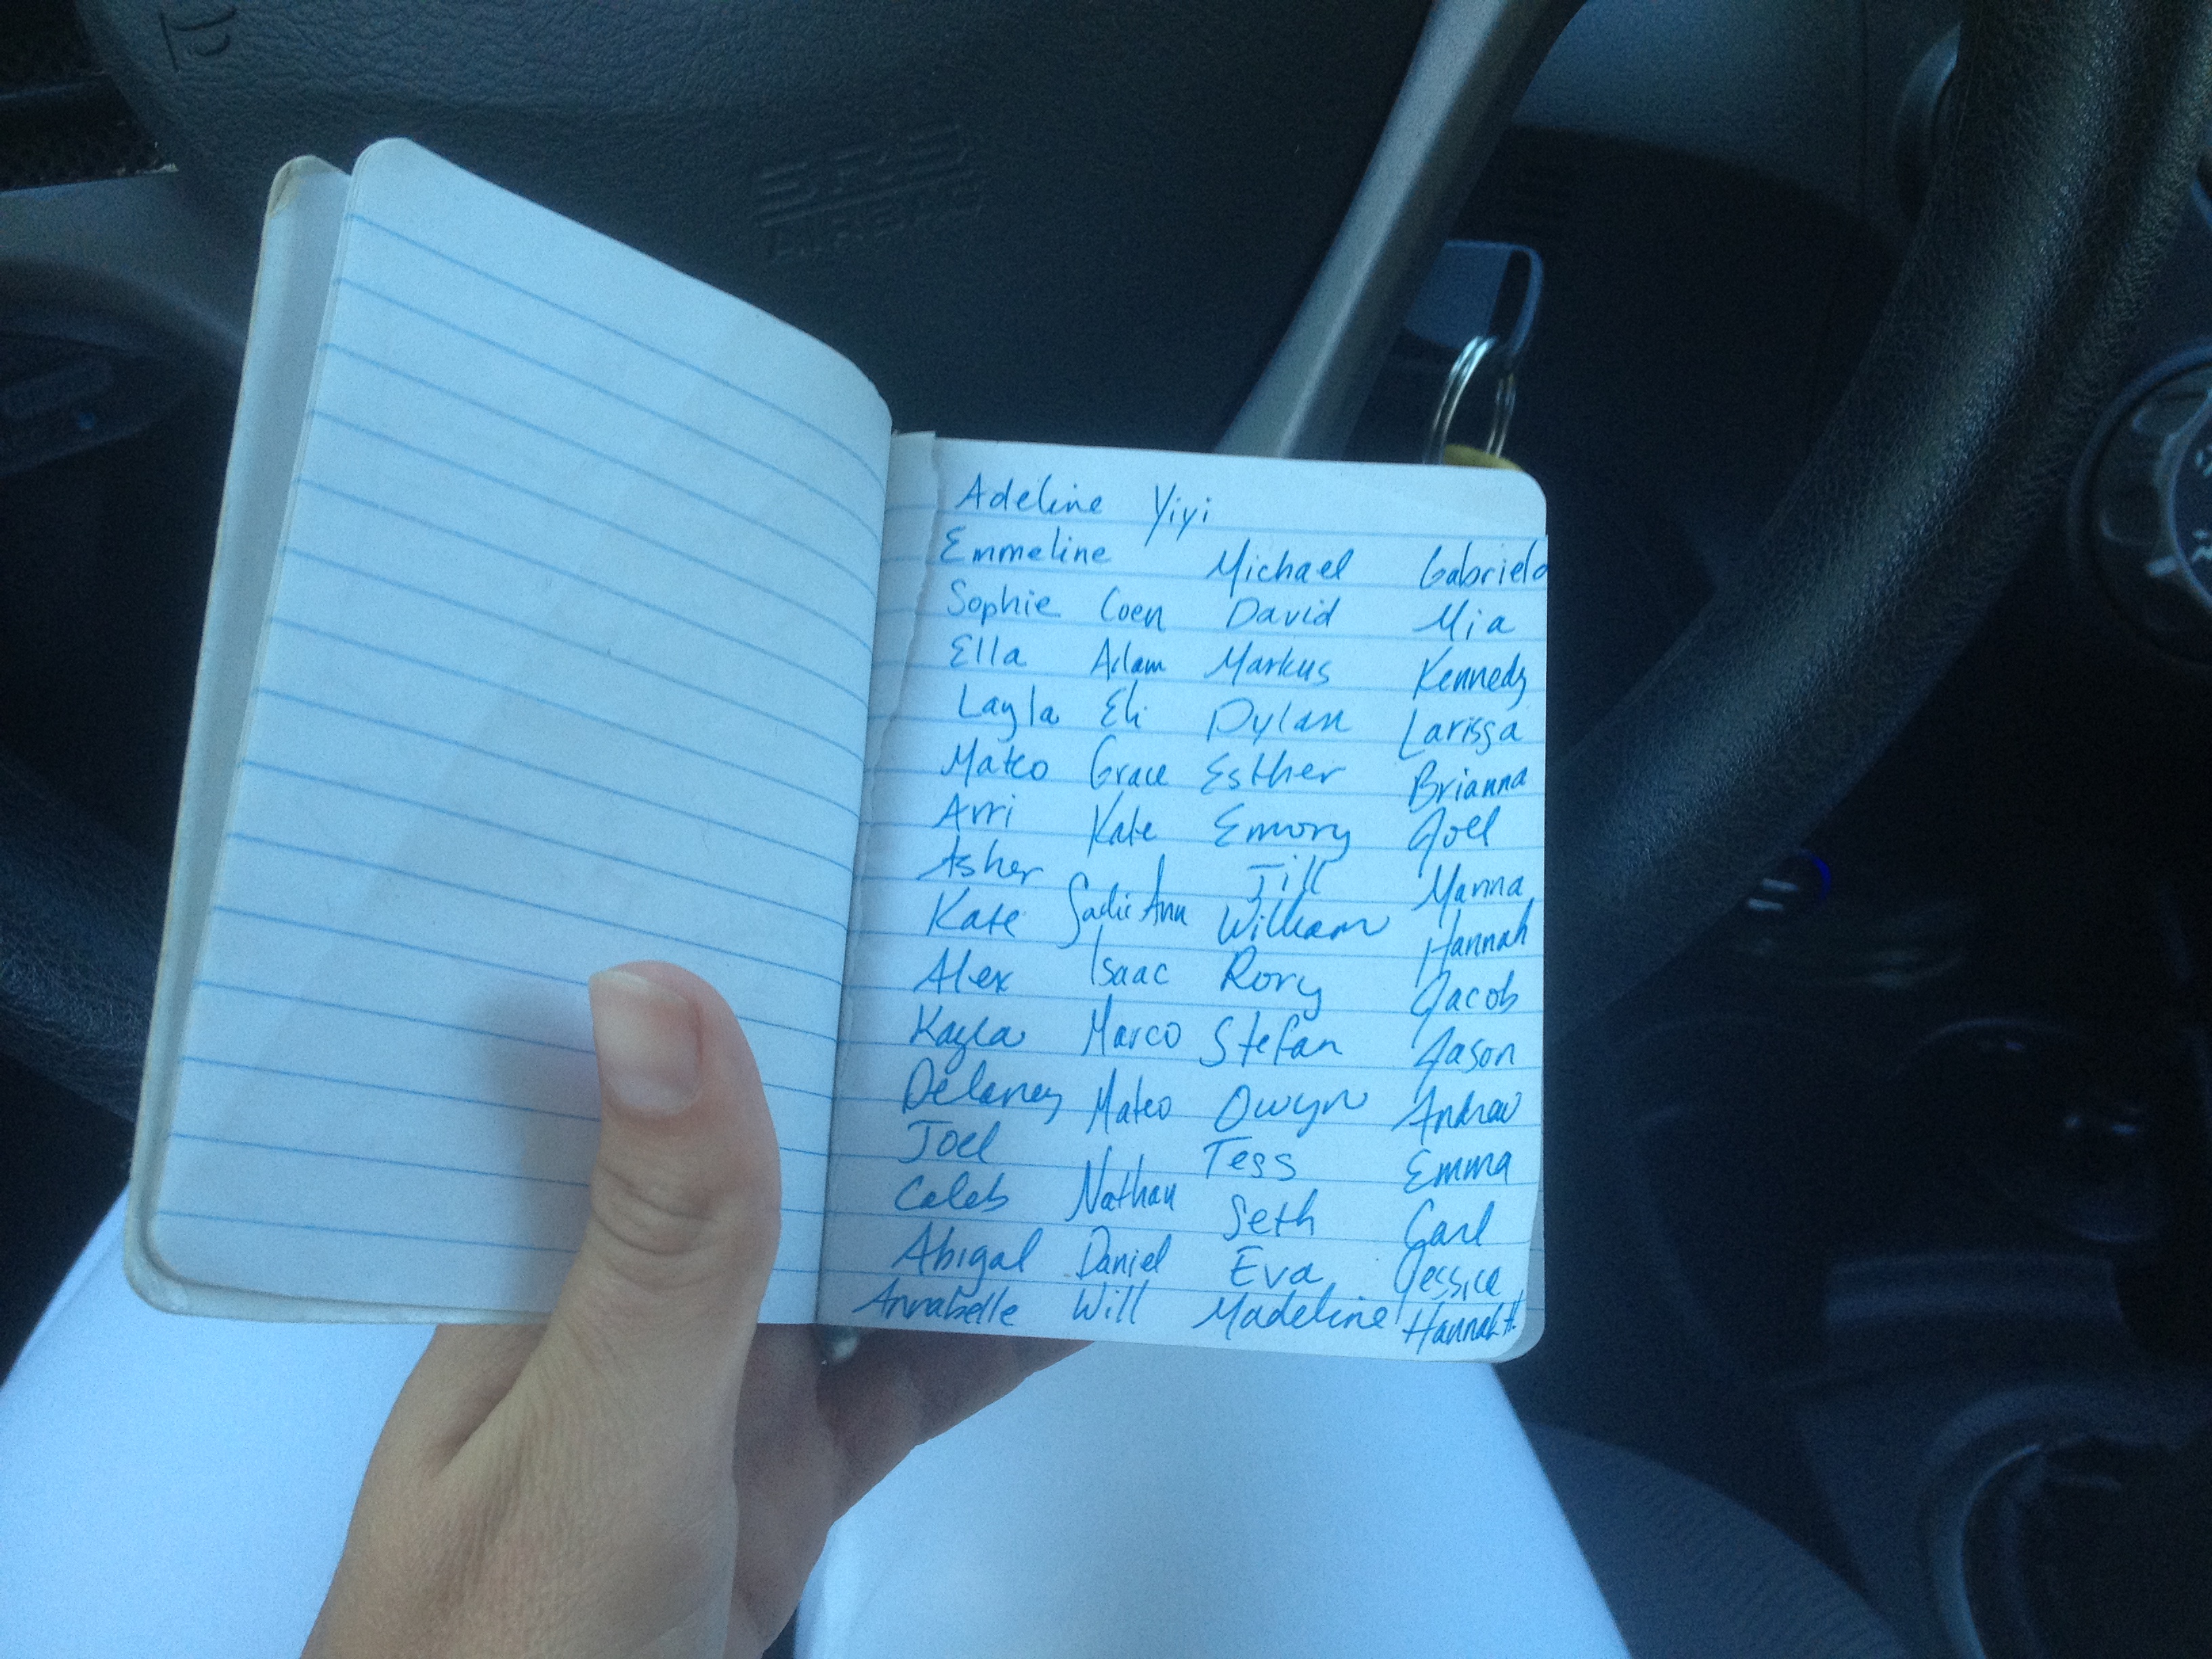 Adeline Yiyi
Emmeline Michael Gabriela
Sophie Coen David Mia
Ella Adam Markus Kennedy
Layla Eli Dylan Larissa
Mateo Grace Esther Brianna
Arri Kate Emory Joel
Asher Sadie Ann Jill Manna
Kate Isaac William Hannah
Alex Marco Rory Jacob
Kayla Mateo Stefan Jason
Delaney Nathan Owyn Andrew
Joel Daniel Tess Emma
Caleb Will Seth Carl
Abigal Eva Jessica
Annabelle Madeline Hannah H.
SRS
AIRBAG